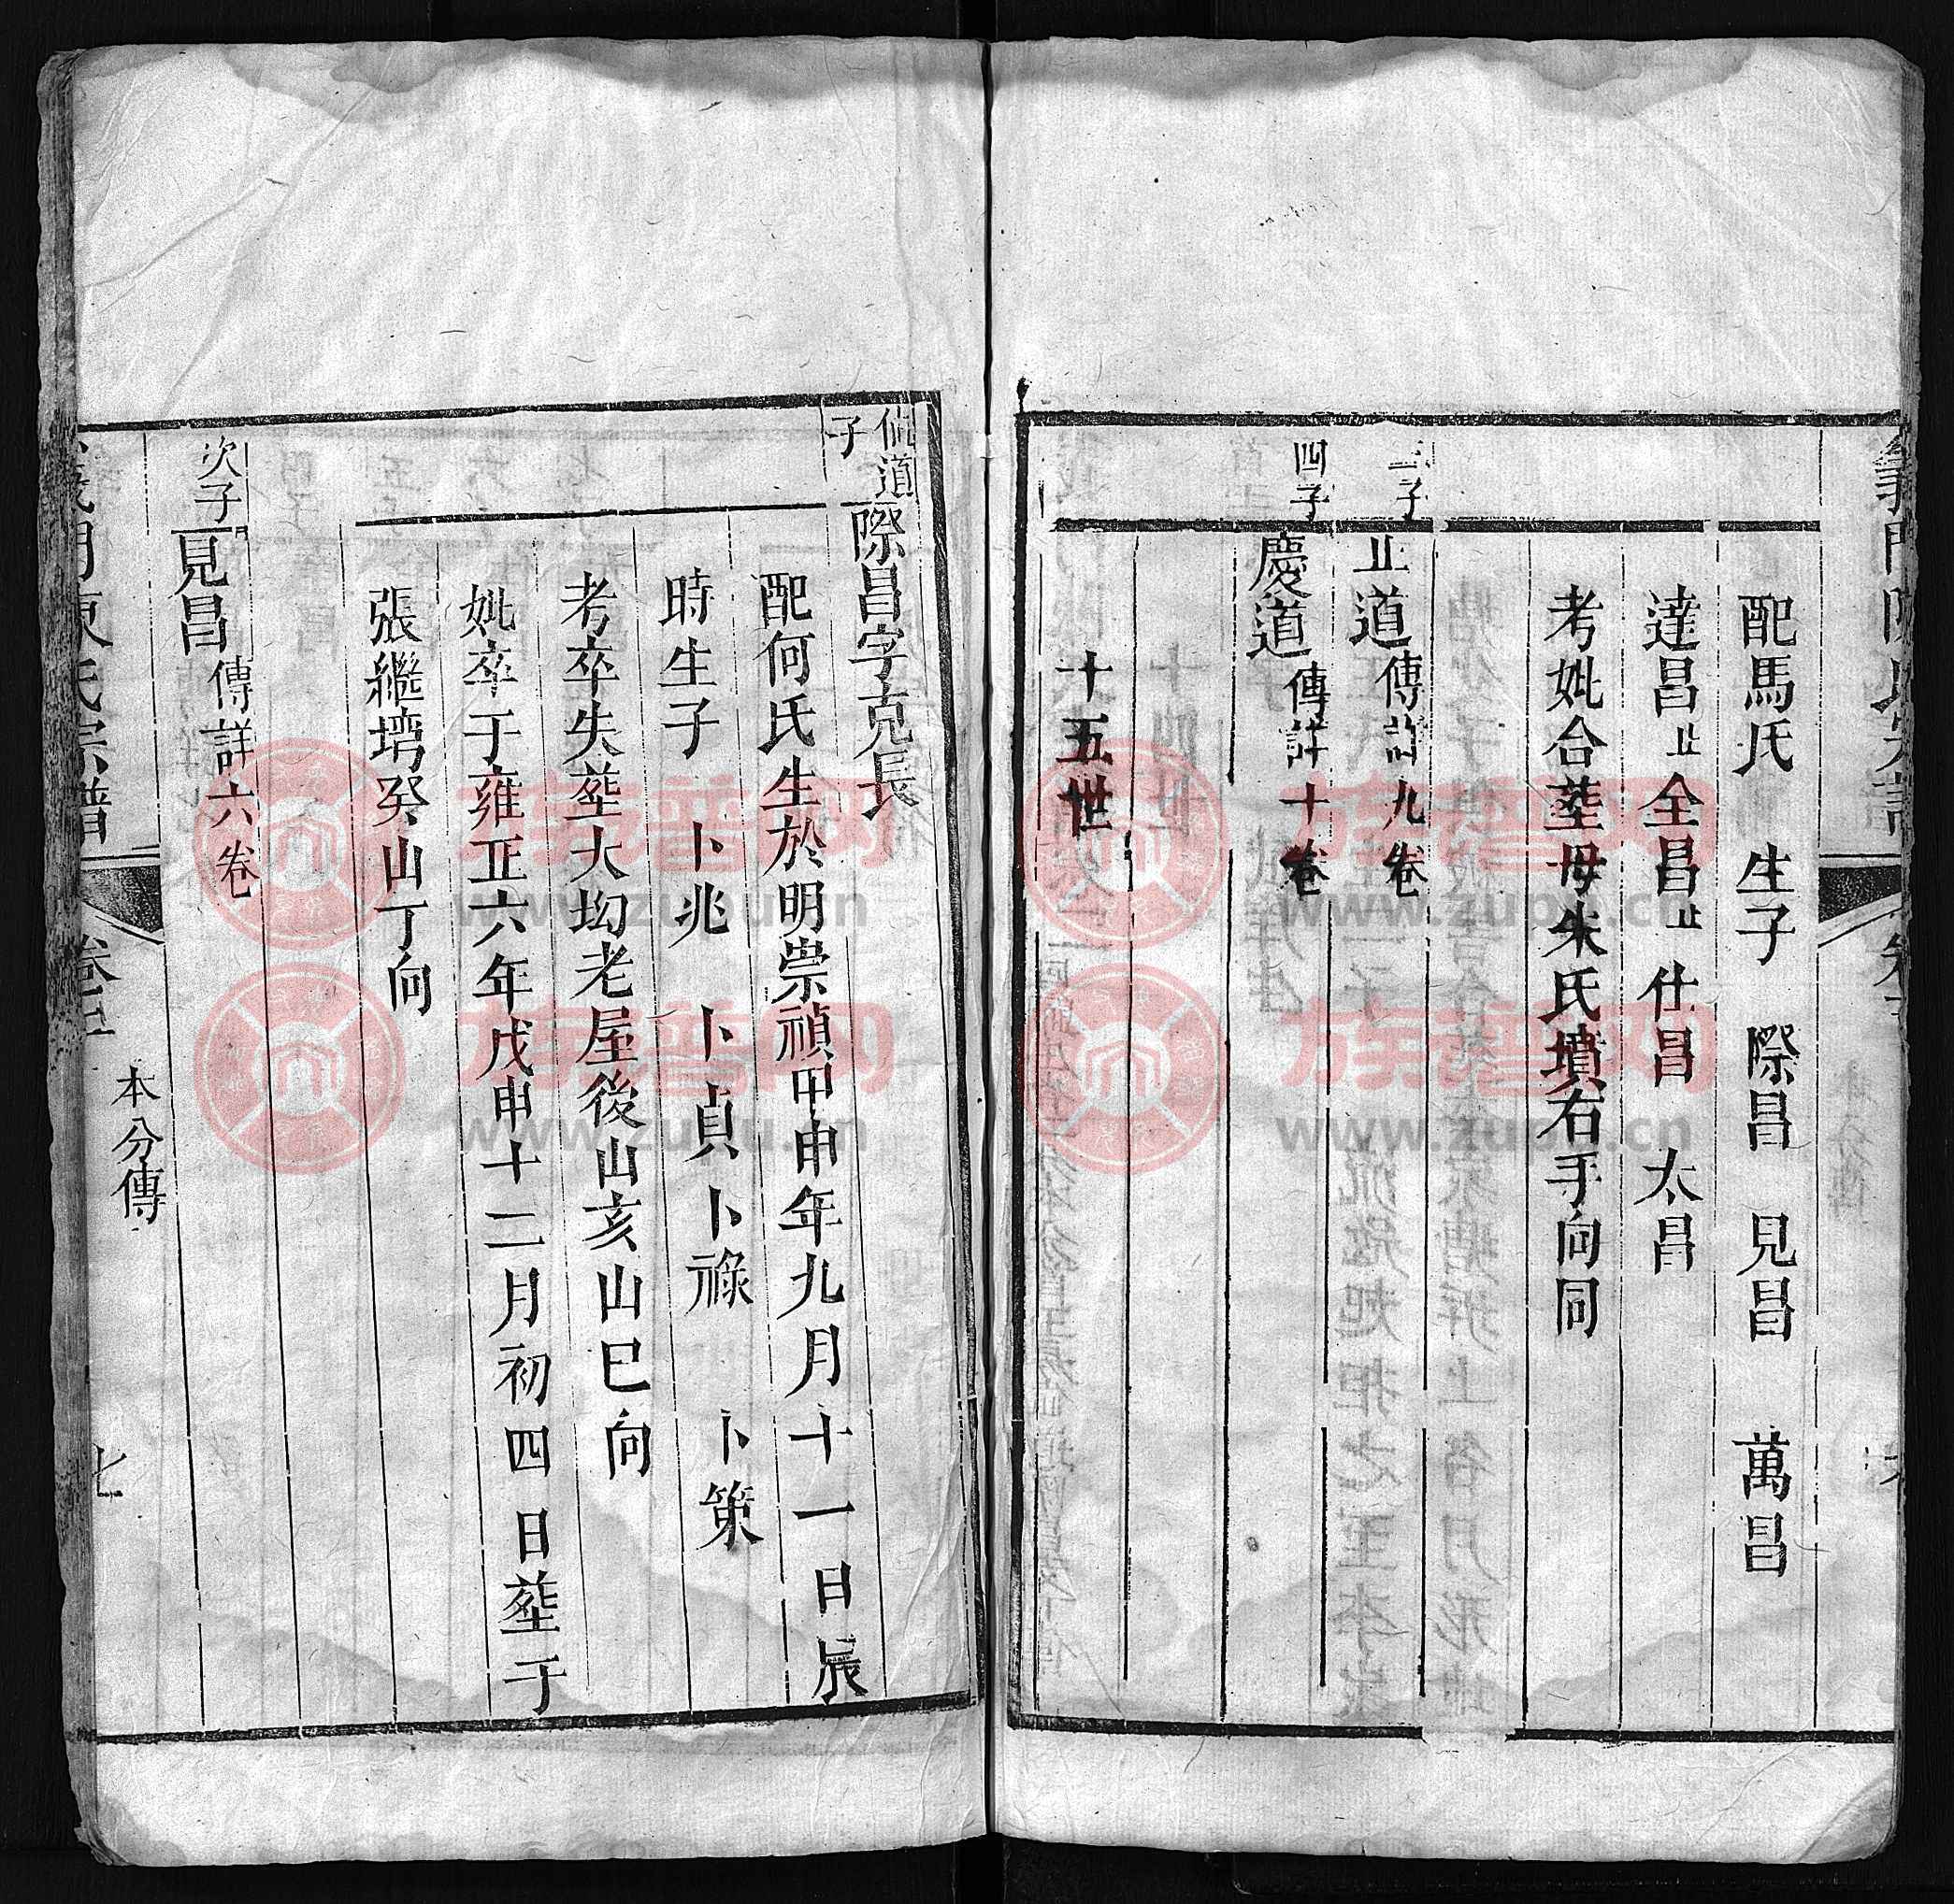 義門陳氏宗譜
配馬氏 生子 際昌 見昌 萬昌
達昌止 全昌止 仕昌 太昌
考妣合塟母朱氏墳右手向同
三子 止道 傳詳九卷
四子 慶道 傳詳十卷
十五世
侃道子 際昌字克長
配何氏生於明崇禎甲申年九月十一日辰
時生子 卜兆 卜貞 卜祿 卜策
考卒失塟大坳老屋後山亥山巳向
妣卒于雍正六年戊申十二月初四日塟于
張繼壪癸山丁向
次子 見昌 傳詳六卷
義門陳氏宗譜 本分傳 七
族普网
www.zupu.cn
族普网
www.zupu.cn
族普网
www.zupu.cn
族普网
www.zupu.cn